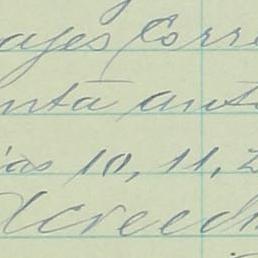 ajes Corre
nta anto
ias 10, 11, 2
Acreed